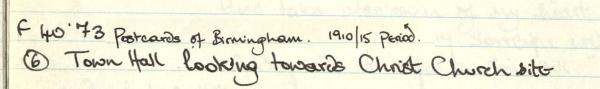 F 40'73 Postcards of Birmingham. 1910/15 Period.
⑥ Town Hall looking towards Christ Church site